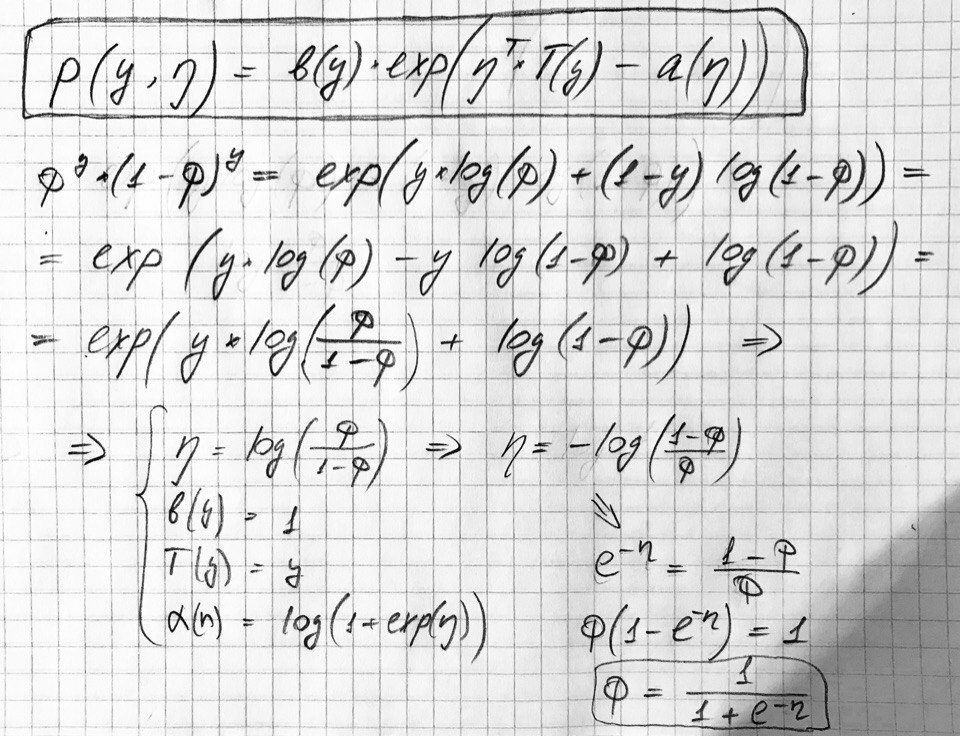 p(y, η) = b(y)·exp(η^T * T(y) − a(η))
φ^y * (1−φ)^y = exp(y*log(φ) + (1−y) log(1−φ)) =
= exp (y·log(φ) − y log(1−φ) + log(1−φ)) =
= exp( y * log(φ/(1−φ)) + log(1−φ)) ⇒
⇒ { η = log(φ/(1−φ)) ⇒ η = −log((1−φ)/φ)
b(y) = 1
⇘
T(y) = y
e^−η = (1−φ)/φ
α(η) = log(1+exp(η))
φ(1−e^−η) = 1
φ = 1/(1+e^−η)